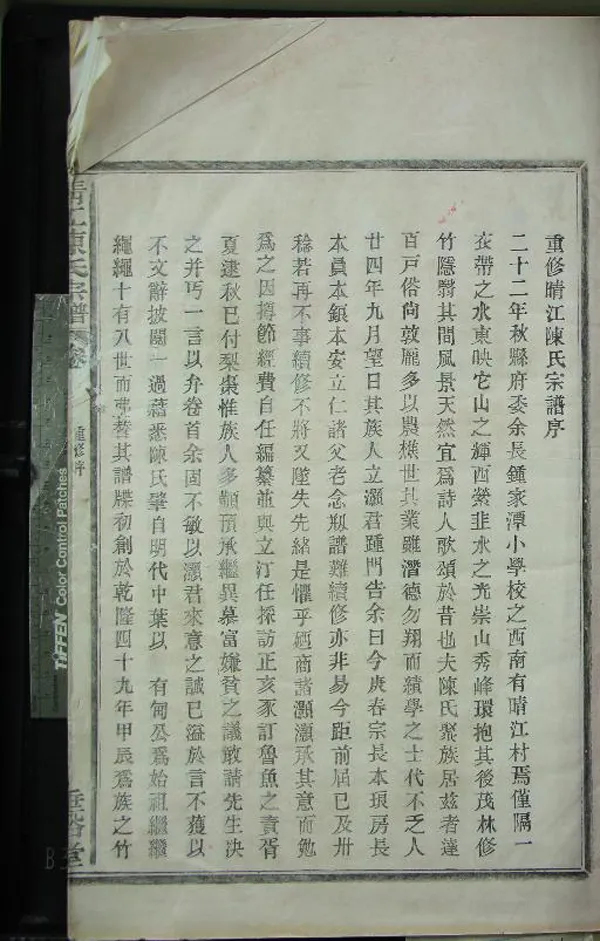 重修晴江陳氏宗譜序
二十二年秋縣府委余長鍾家潭小學校之西南有晴江村焉僅隔一
衣帶之水東映它山之輝西縈韭水之光崇山秀峰環抱其後茂林修
竹隱翳其間風景天然宜爲詩人歌頌於昔也夫陳氏聚族居茲者達
百戸俗尙敦龐多以農樵世其業雖潛德勿翔而績學之士代不乏人
廿四年九月望日其族人立灝君踵門告余曰今庚春宗長本琅房長
本員本銀本安立仁諸父老念刱譜難續修亦非易今距前屆已及卅
稔若再不事續修不將又墜失先緒是懼乎廼商諸灝灝承其意而勉
爲之因撙節經費自任編纂並與立汀任採訪正亥豕訂魯魚之責胥
夏逮秋已付梨棗惟族人多顢頇承繼異慕富嫌貧之議敢請先生決
之并丐一言以弁卷首余固不敏以灝君來意之誠已溢於言不獲以
不文辭披閱一過藉悉陳氏肇自明代中葉以 有甸公爲始祖繼繼
繩繩十有八世而弗替其譜牒初創於乾隆四十九年甲辰爲族之竹
晴江陳氏宗譜 卷
重修序
堂
TIFFEN Color Control Patches
B